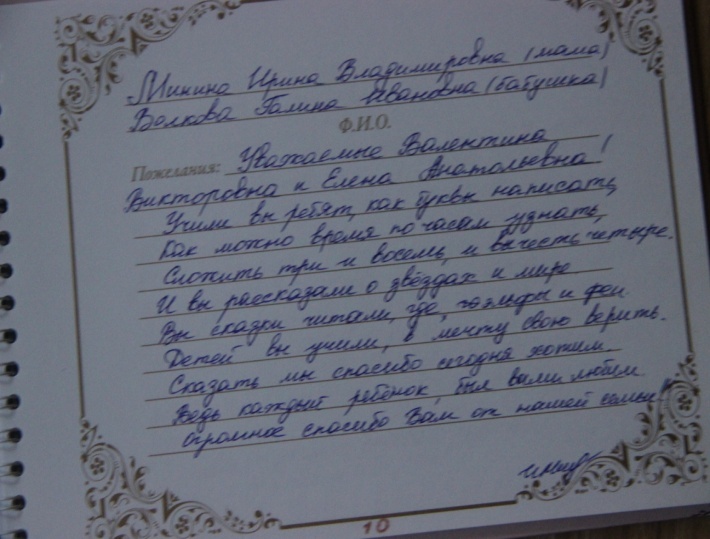 Минина Ирина Владимировна (мама)
Волкова Галина Ивановна (бабушка)
Ф.И.О.
Пожелания: Уважаемые Валентина
Викторовна и Елена Анатольевна!
Учили вы ребят, как буквы написать,
Как можно время по часам узнать,
Сложить три и восемь, и вычесть четыре.
И вы рассказали о звёздах и мире.
Вы сказки читали, где, эльфы и феи
Детей вы учили, в мечту свою верить.
Сказать мы спасибо сегодня хотим
Ведь каждый ребенок, был вами любим
огромное спасибо Вам от нашей семьи!
10